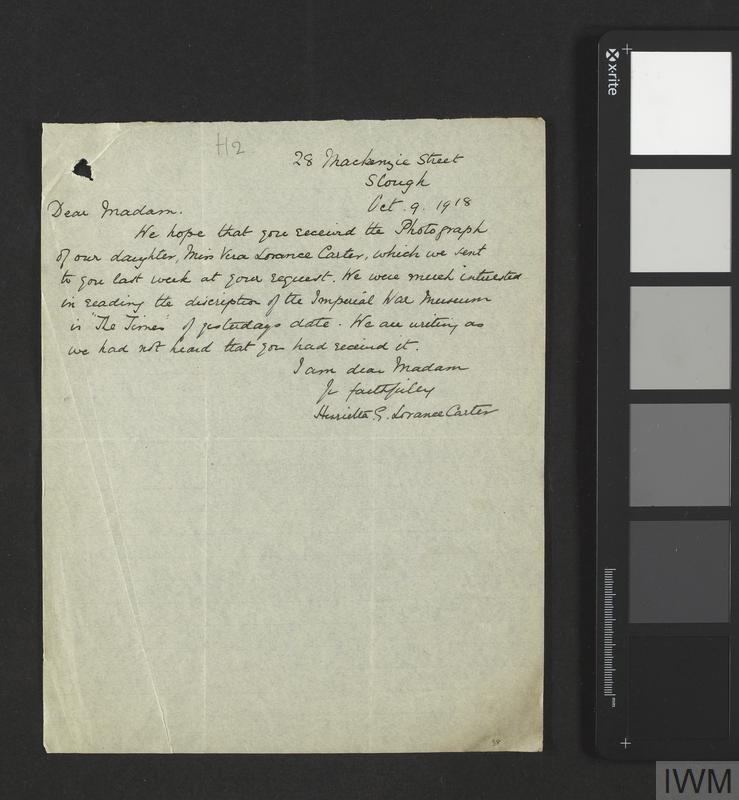 H2
28 Mackenzie Street
Slough
Oct. 9. 1918
Dear Madam.
We hope that you received the Photograph
of our daughter, Miss Vera Lorance Carter, which we sent
to you last week at your request. We were much interested
in reading the discription of the Imperial War Museum
in "The Times of yesterdays date. We are writing as
we had not heard that you had received it.
I am dear Madam
Yr faithfully
Henrietta G. Lorance Carter
38
x-rite
mm
IWM